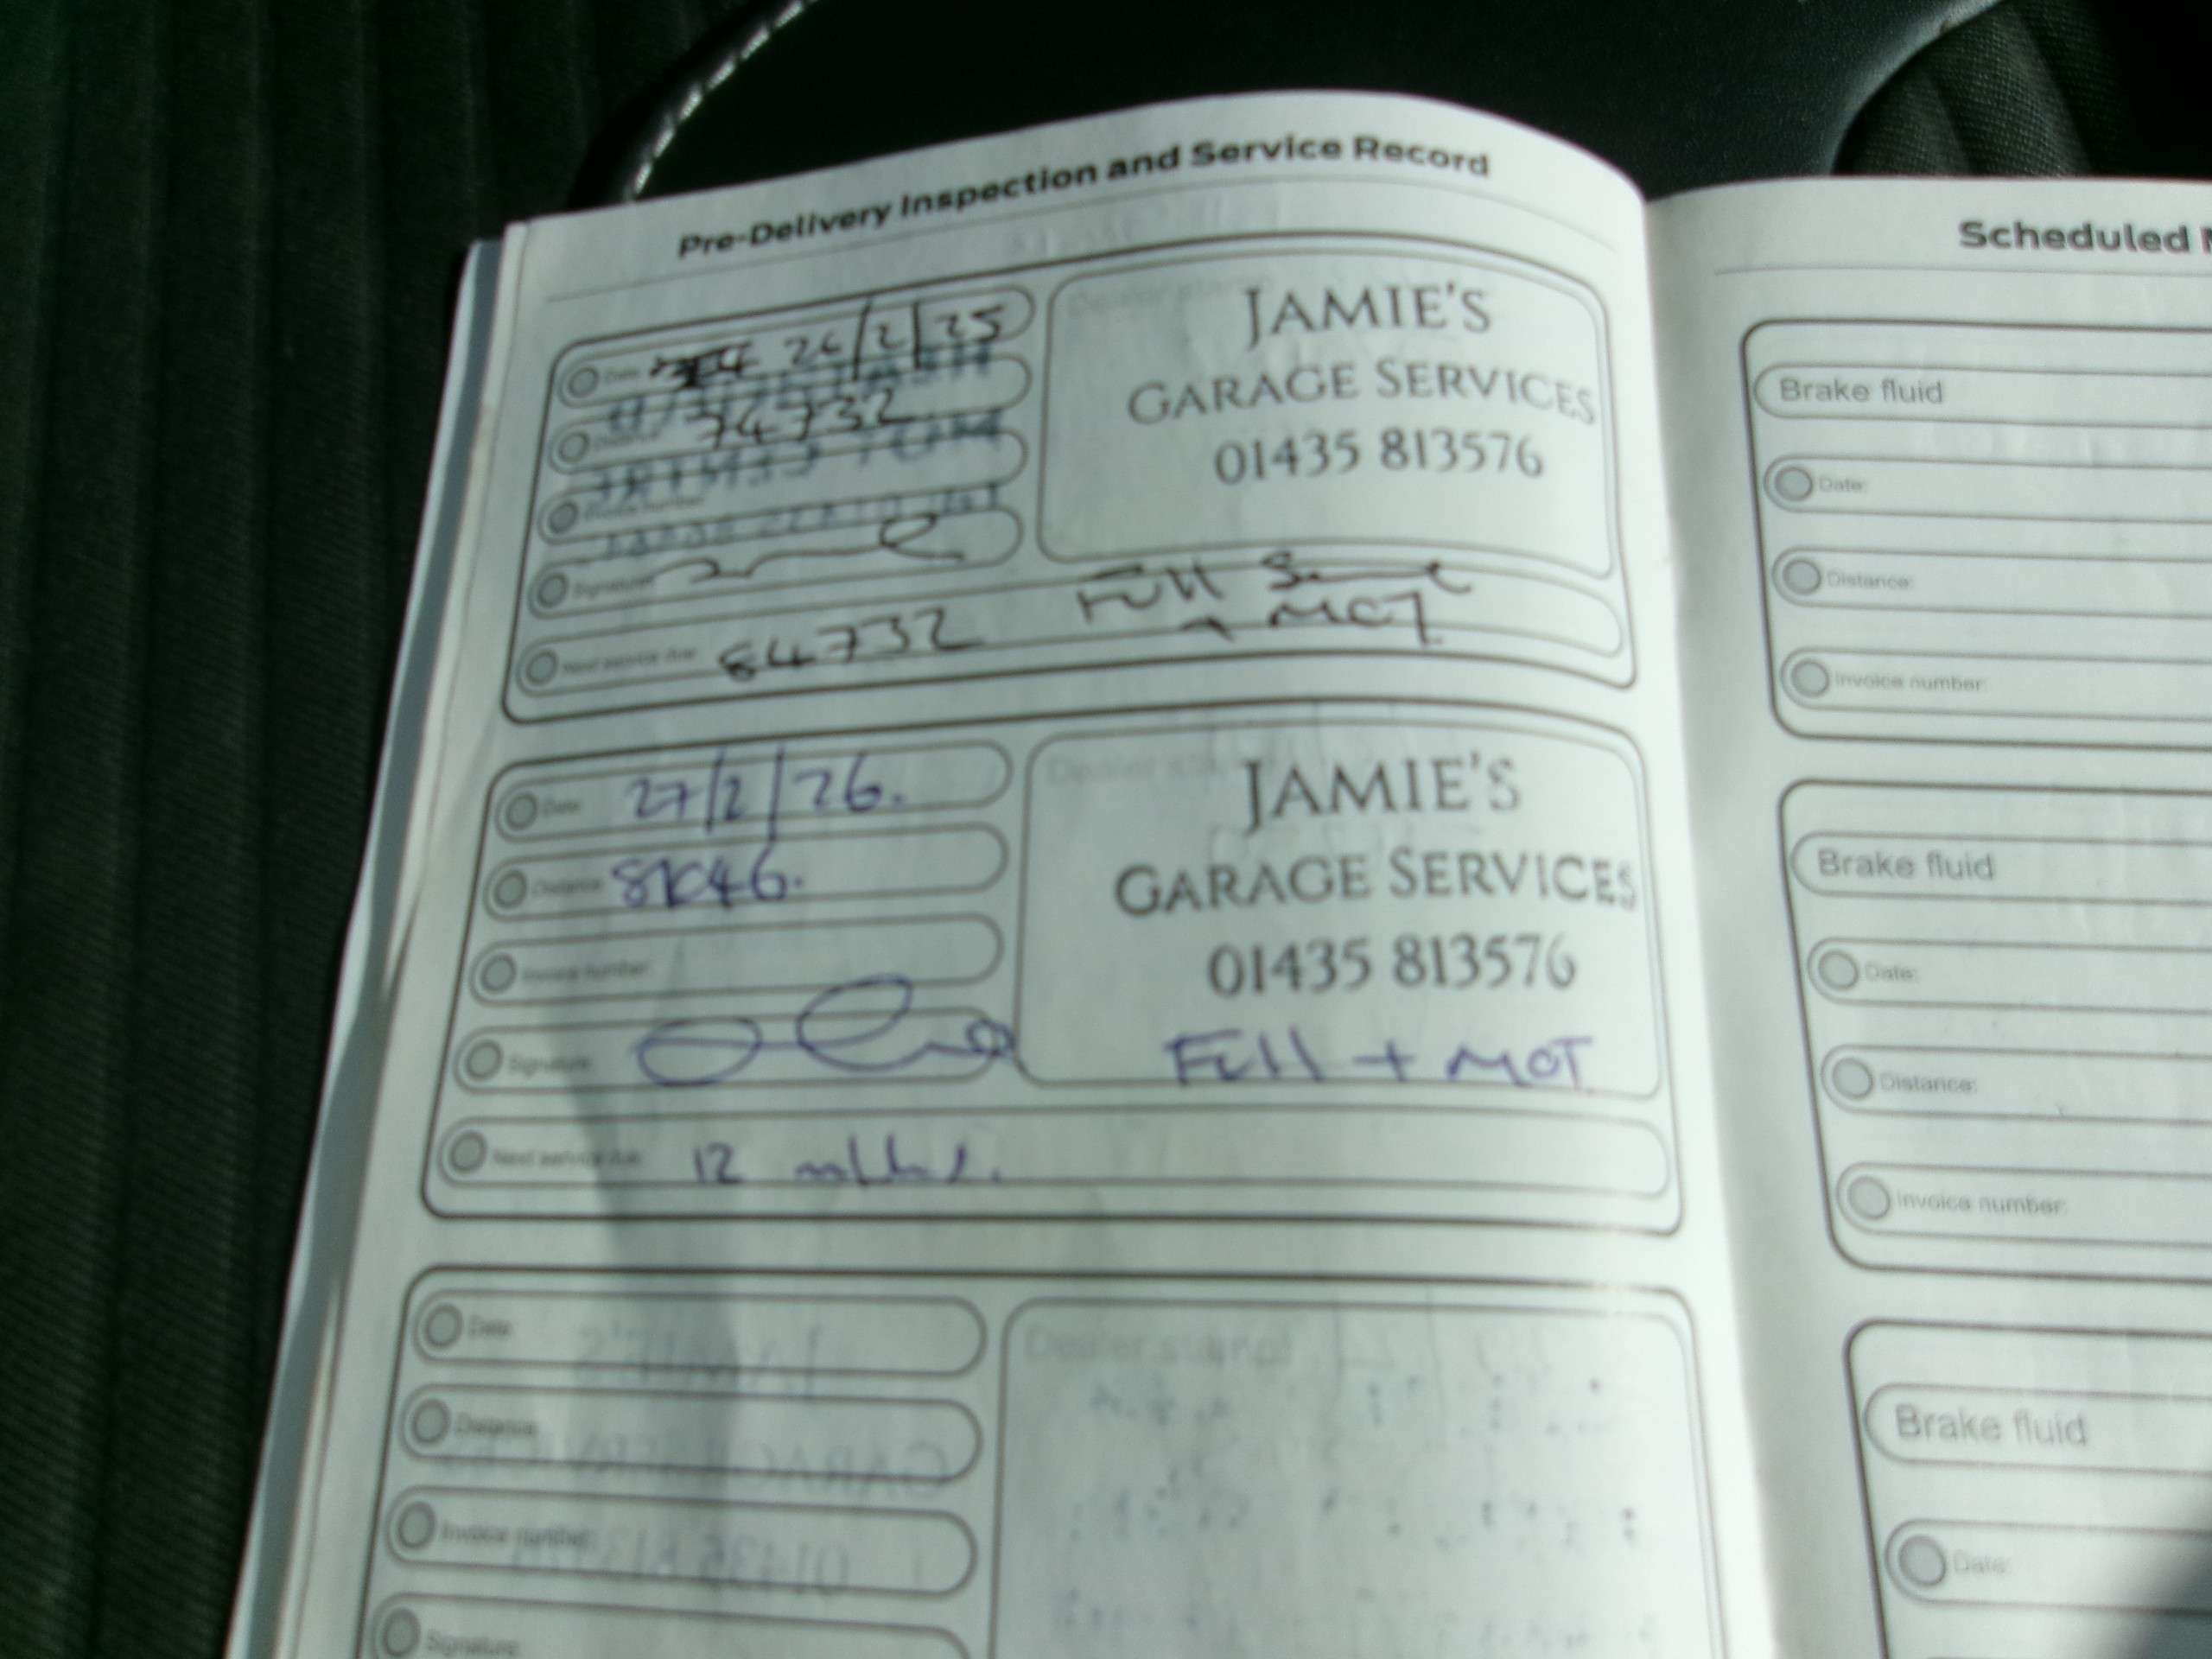 Pre-Delivery Inspection and Service Record
Date: 26/2/25
74732
Signature:
Next service due: 84732
Full Service
+ MOT
JAMIE'S
GARAGE SERVICES
01435 813576
Date: 27/2/26.
Distance:
Invoice number:
Signature:
Next service due: 12 months.
Dealer stamp
JAMIE'S
GARAGE SERVICES
01435 813576
Full + MOT
Date:
Distance:
Invoice number:
Signature:
Dealer stamp
Scheduled
Brake fluid
Date:
Distance:
Invoice number:
Brake fluid
Date:
Distance:
Invoice number:
Brake fluid
Date: